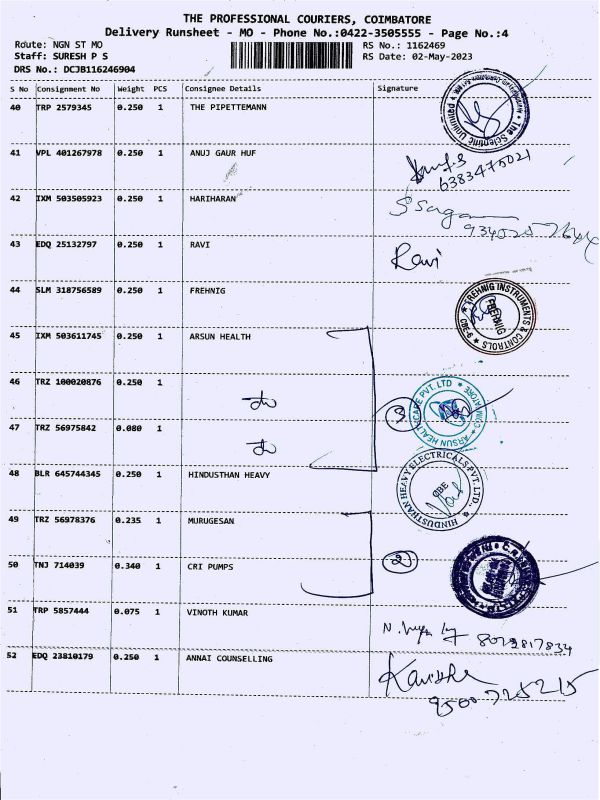 THE PROFESSIONAL COURIERS, COIMBATORE
Delivery Runsheet - MO - Phone No.:0422-3505555 - Page No.:4
Route: NGN ST MO RS No.: 1162469
Staff: SURESH P S RS Date: 02-May-2023
DRS No.: DCJB116246904
S No Consignment No Weight PCS Consignee Details Signature
40 TRP 2579345 0.250 1 THE PIPETTEMANN
The Scientific
41 VPL 401267978 0.250 1 ANUJ GAUR HUF
6383475021
42 IXM 503505923 0.250 1 HARIHARAN
43 EDQ 25132797 0.250 1 RAVI
Ravi
44 SLM 318756589 0.250 1 FREHNIG
FREHNIG INSTRUMENTS & CONTROLS CBE-6
FREHNIG
45 IXM 503611745 0.250 1 ARSUN HEALTH
46 TRZ 100020876 0.250 1
3
ARSUN HEALTHCARE PVT. LTD COIMBATORE
47 TRZ 56975842 0.080 1
48 BLR 645744345 0.250 1 HINDUSTHAN HEAVY
HINDUSTHAN HEAVY ELECTRICALS PVT. LTD.
CBE
49 TRZ 56978376 0.235 1 MURUGESAN
50 TNJ 714039 0.340 1 CRI PUMPS
2
51 TRP 5857444 0.075 1 VINOTH KUMAR
8072817834
52 EDQ 23810179 0.250 1 ANNAI COUNSELLING
9500725215